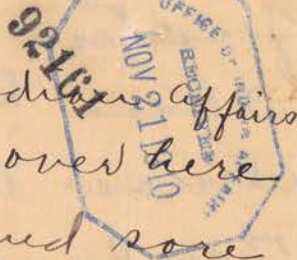 92161
OFFICE OF INDIAN AFFAIRS
RECEIVED
NOV 21 1910
dian affairs
over here
ued sore